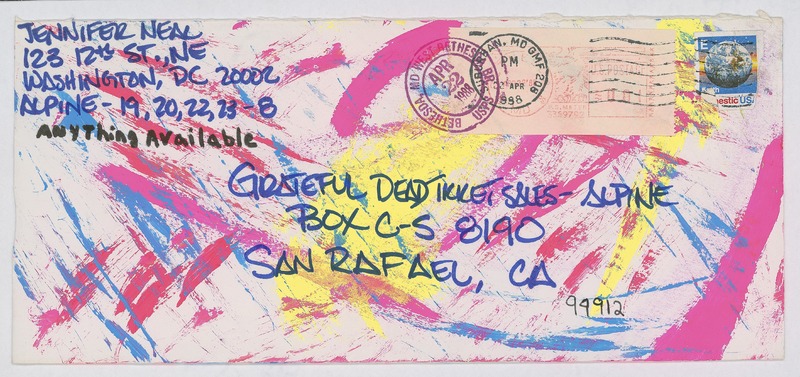 JENNIFER NEAL
123 12th ST., NE
WASHINGTON, DC 20002
ALPINE - 19, 20, 22, 23 - 8
ANYTHING AVAILABLE
BETHESDA MD WEST BETHESDA BR
APR 22 1988
MD GMF 208
PM
22 APR
1988
E
Earth
Domestic USA
GRATEFUL DEAD TICKET SALES - ALPINE
BOX C-S 8190
SAN RAFAEL, CA
94912